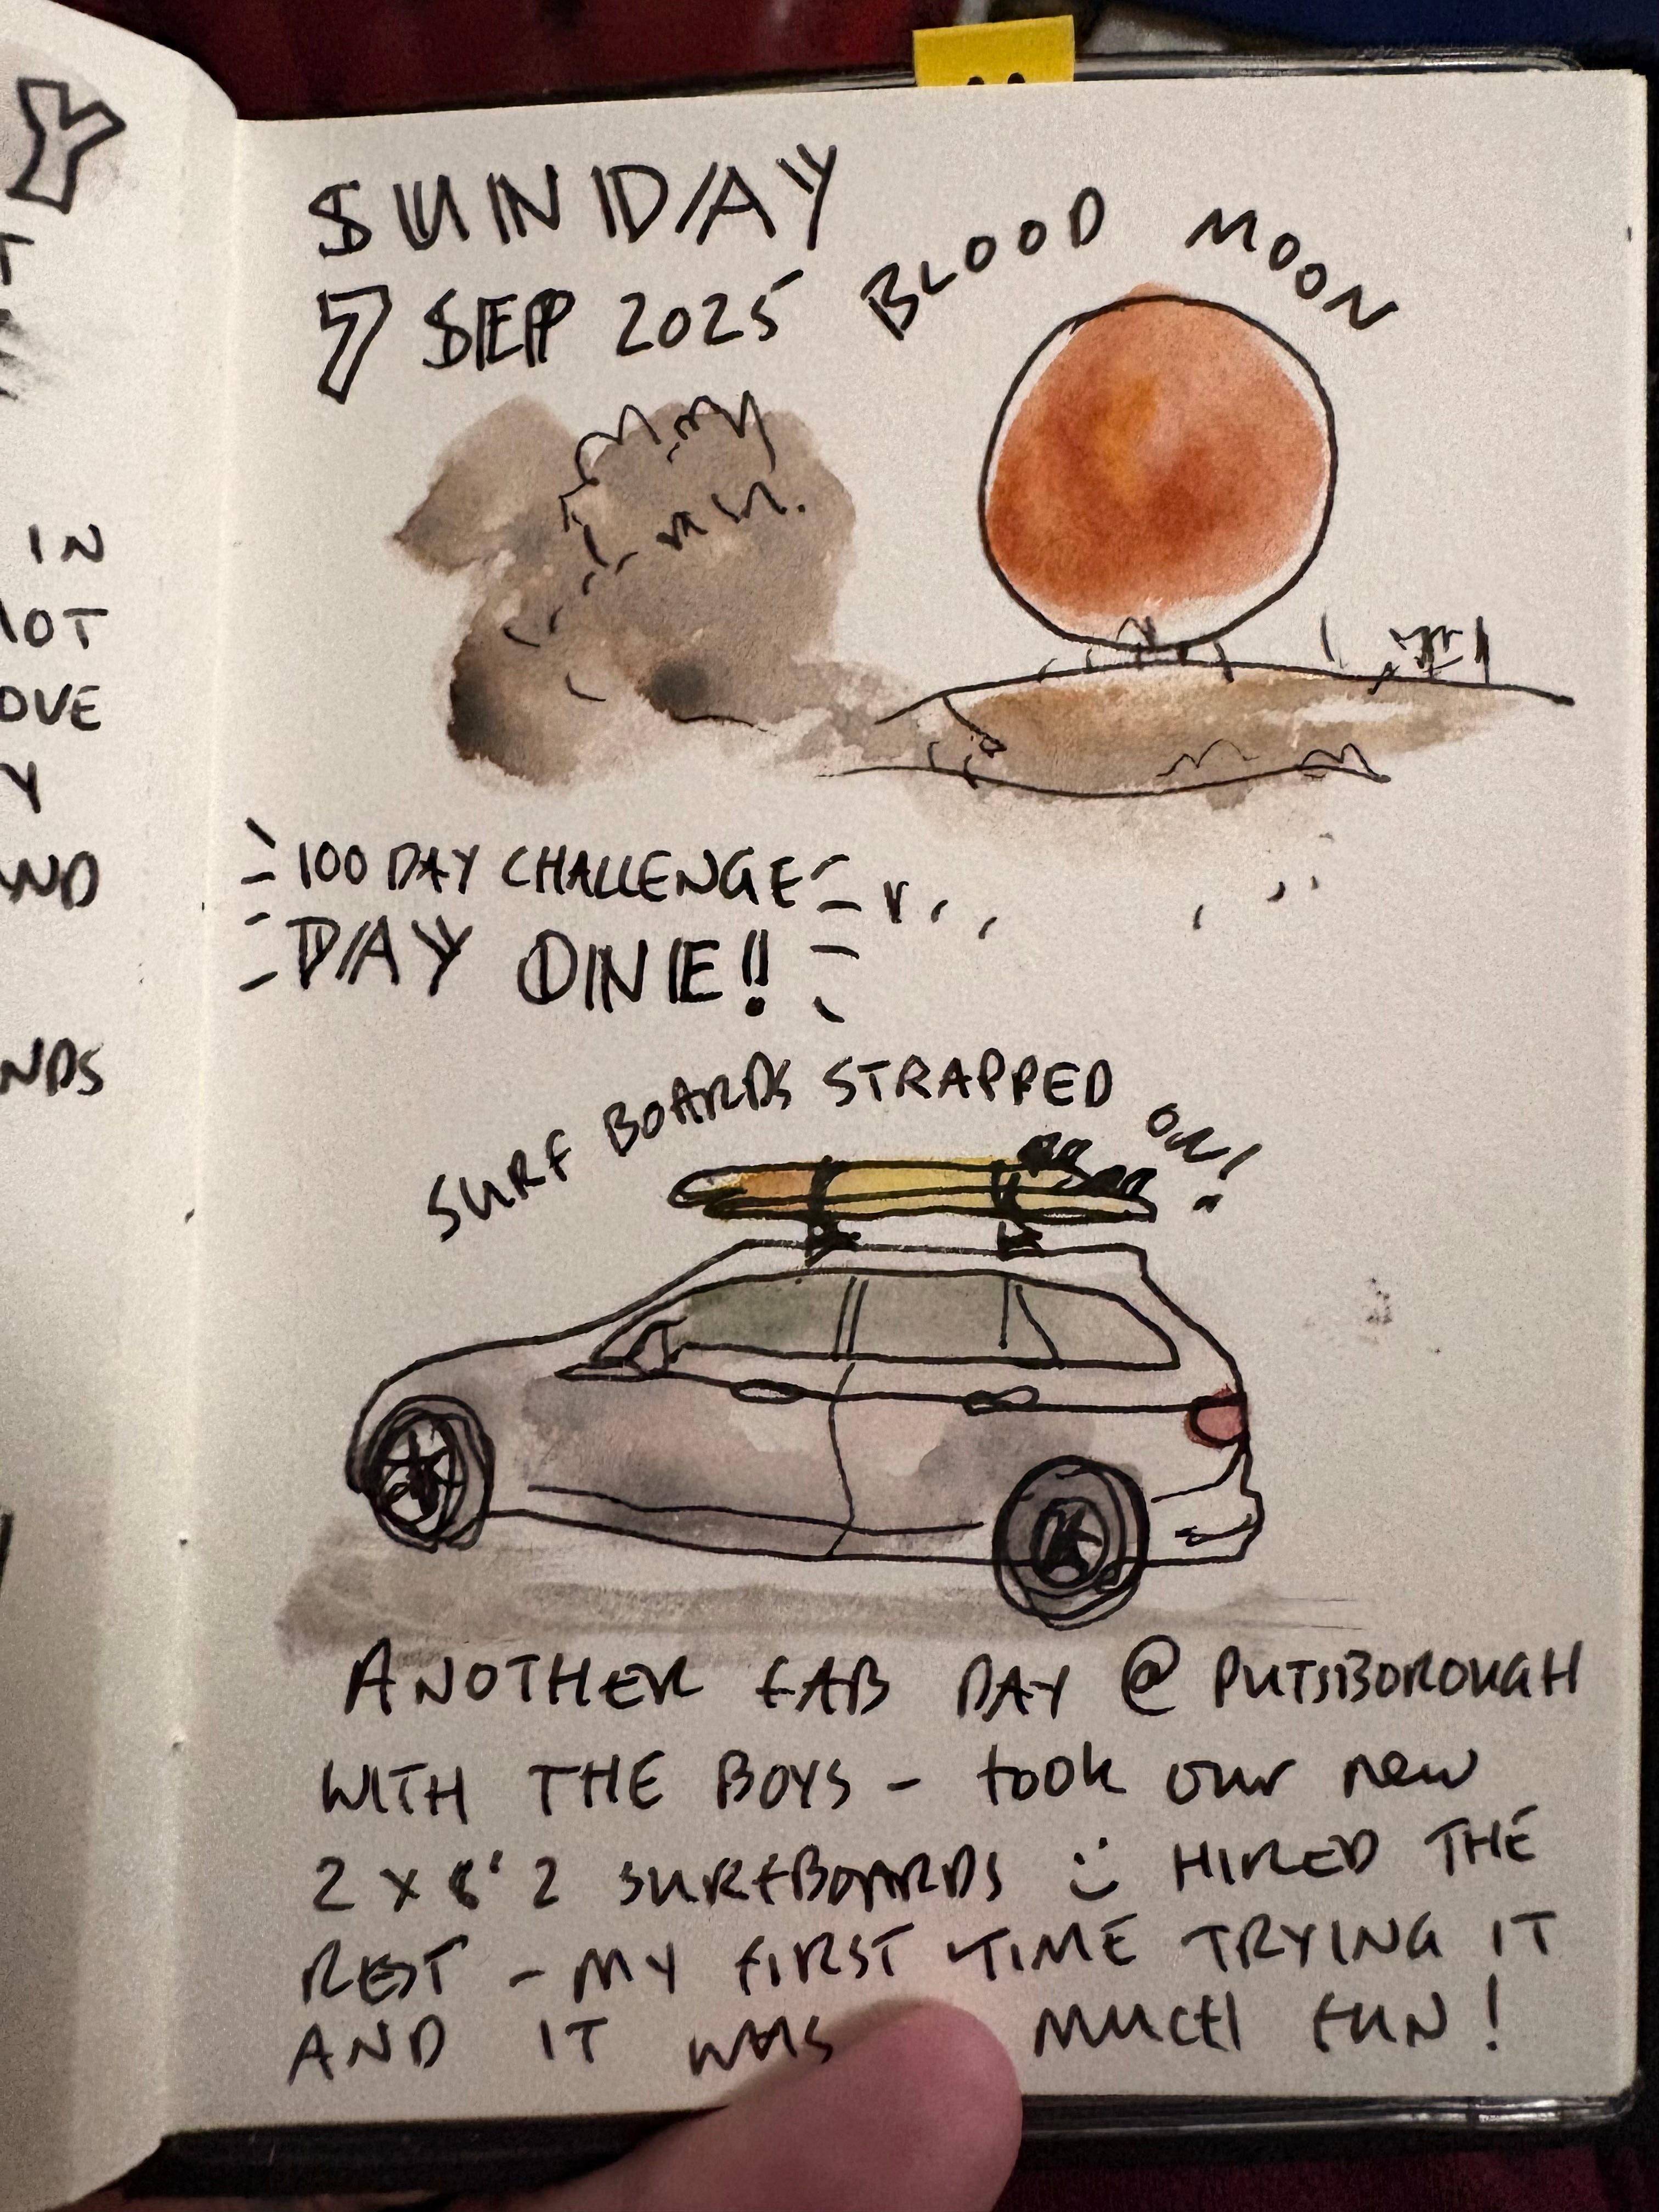 Y
T
IN
OVE
Y
AND
NDS
SUNDAY
7 SEP 2025
BLOOD MOON
100 DAY CHALLENGE
DAY ONE!!
SURF BOARDS STRAPPED ON!
ANOTHER FAB DAY @ PUTSBOROUGH
WITH THE BOYS - took our new
2 x 8'2 SURFBOARDS :) HIRED THE
REST - MY FIRST TIME TRYING IT
AND IT WAS MUCH FUN!